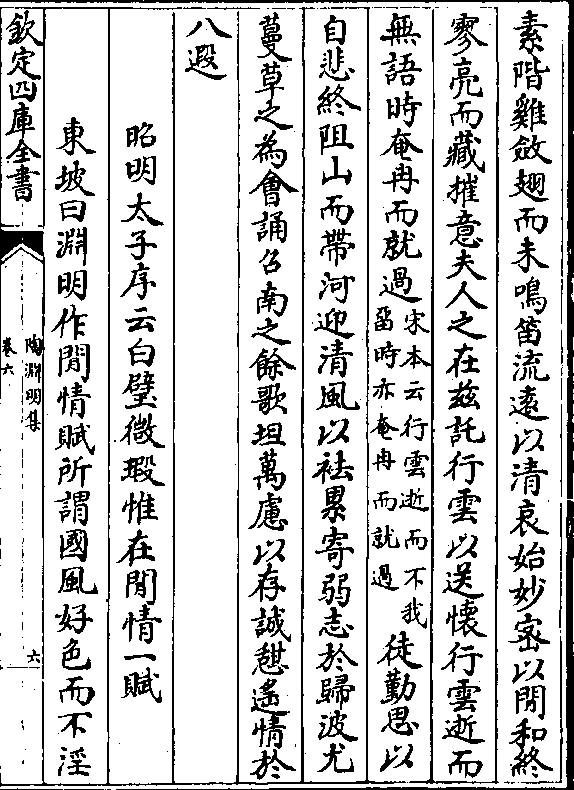 素階雞斂翅而未鳴笛流遠以清哀始妙宻以閒和終
寥亮而藏摧意夫人之在兹託行雲以送懐行雲逝而
無語時奄冉而就過宋本云行雲逝而不我
留時亦奄冉而就過徒勤思以
自悲終阻山而帶河迎清風以袪累寄弱志於歸波尤
蔓草之為㑹誦召南之餘歌坦萬慮以存誠憇遙情於
八遐
昭明太子序云白璧微瑕惟在閒情一賦
東坡曰淵明作閒情賦所謂國風好色而不淫
欽定四庫全書
陶淵明集
卷六
六